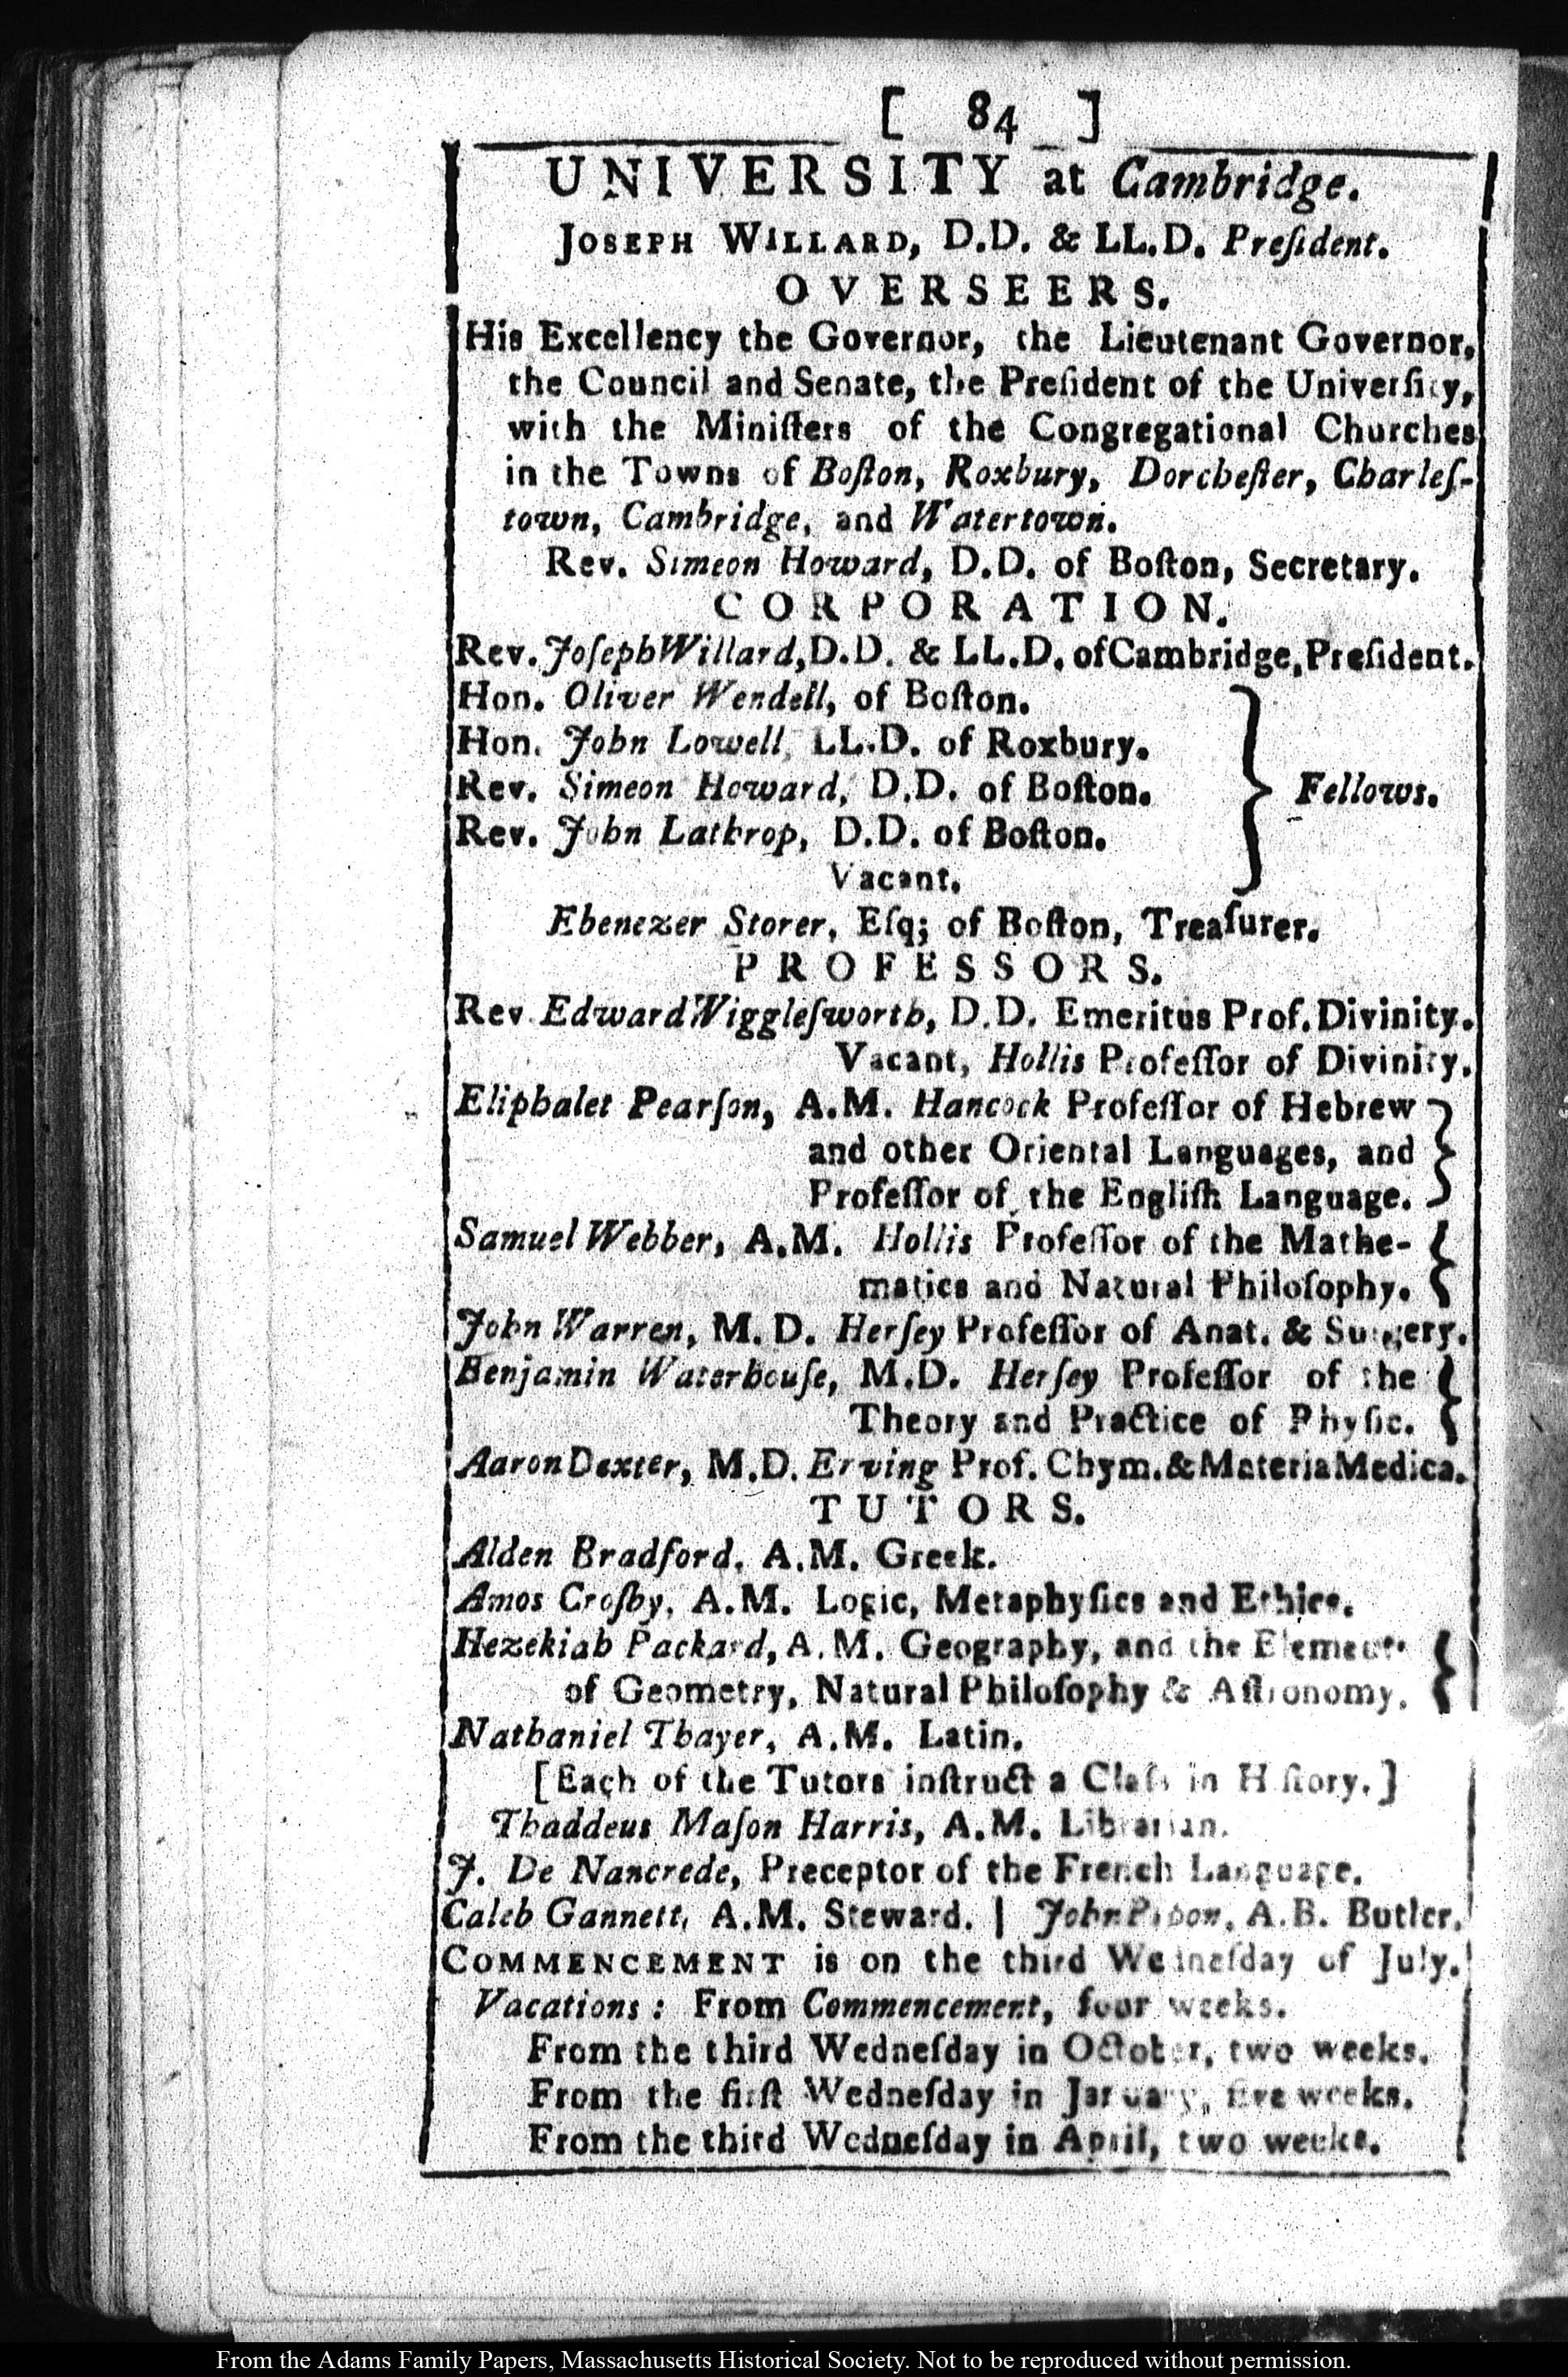 [ 84 ]
UNIVERSITY at Cambridge.
JOSEPH WILLARD, D.D. & LL.D. Preſident.
OVERSEERS.
His Excellency the Governor, the Lieutenant Governor,
the Council and Senate, the Preſident of the Univerſity,
with the Miniſters of the Congregational Churches
in the Towns of Boſton, Roxbury, Dorcheſter, Charleſ-
town, Cambridge, and Watertown.
Rev. Simeon Howard, D.D. of Boſton, Secretary.
CORPORATION.
Rev. Joſeph Willard, D.D. & LL.D. of Cambridge, Preſident.
Hon. Oliver Wendell, of Boſton.
Hon. John Lowell, LL.D. of Roxbury.
Rev. Simeon Howard, D.D. of Boſton.
Fellows.
Rev. John Lathrop, D.D. of Boſton.
Vacant.
Ebenezer Storer, Eſq; of Boſton, Treaſurer.
PROFESSORS.
Rev. Edward Wiggleſworth, D.D. Emeritus Prof. Divinity.
Vacant, Hollis Profeſſor of Divinity.
Eliphalet Pearſon, A.M. Hancock Profeſſor of Hebrew
and other Oriental Languages, and
Profeſſor of the Engliſh Language.
Samuel Webber, A.M. Hollis Profeſſor of the Mathe-
matics and Natural Philoſophy.
John Warren, M.D. Herſey Profeſſor of Anat. & Surgery.
Benjamin Waterhouſe, M.D. Herſey Profeſſor of the
Theory and Practice of Phyſic.
Aaron Dexter, M.D. Erving Prof. Chym. & Materia Medica.
TUTORS.
Alden Bradford, A.M. Greek.
Amos Croſby, A.M. Logic, Metaphyſics and Ethics.
Hezekiah Packard, A.M. Geography, and the Elements
of Geometry, Natural Philoſophy & Aſtronomy.
Nathaniel Thayer, A.M. Latin.
[Each of the Tutors inſtruct a Claſs in Hiſtory.]
Thaddeus Maſon Harris, A.M. Librarian.
J. De Nancrede, Preceptor of the French Language.
Caleb Gannett, A.M. Steward. | John Pipon, A.B. Butler.
COMMENCEMENT is on the third Wedneſday of July.
Vacations: From Commencement, four weeks.
From the third Wedneſday in October, two weeks.
From the firſt Wedneſday in January, five weeks.
From the third Wedneſday in April, two weeks.
From the Adams Family Papers, Massachusetts Historical Society. Not to be reproduced without permission.